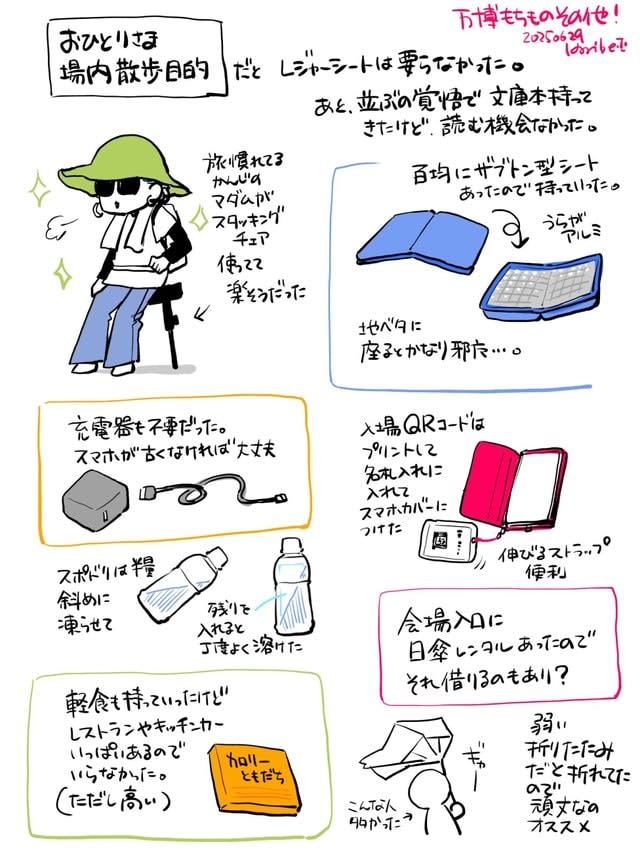 万博もちものその他!
20250629
おひとりさま
場内散歩目的
だと レジャーシートは要らなかった。
あと、並ぶの覚悟で文庫本持って
きたけど、読む機会なかった。
旅慣れてる
かんじの
マダムが
スタッキング
チェア
使ってて
楽そうだった
百均にザブトン型シート
あったので持っていった。
うらが
アルミ
地ベタに
座るとかなり邪魔…。
充電器も不要だった。
スマホが古くなければ大丈夫
入場QRコードは
プリントして
名札入れに
入れて
スマホカバーに
つけた
伸びるストラップ
便利
スポドリは半量
斜めに
凍らせて
残りで
入れると
丁度よく溶けた
会場入口に
日傘レンタルあったので
それ借りるのもあり?
軽食も持っていったけど
レストランやキッチンカー
いっぱいあるので
いらなかった。
(ただし高い)
カロリー
ともだち
こんな人
多かった→
弱い
折りたたみ
だと折れてた
ので
頑丈なの
オススメ